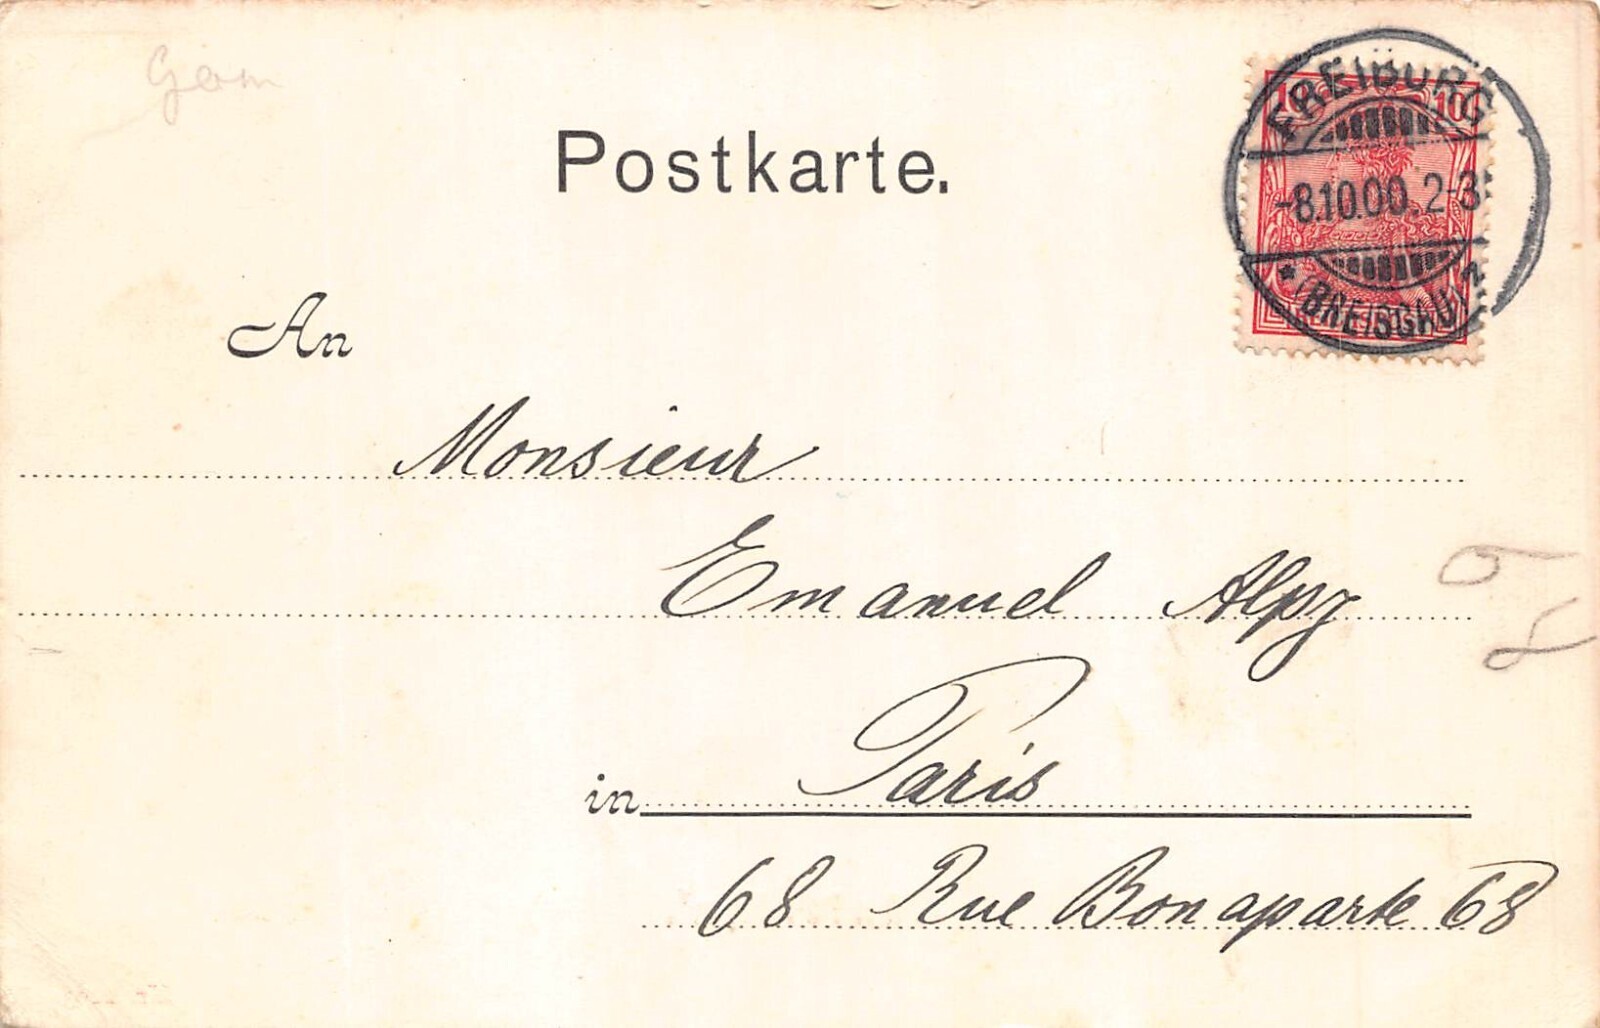 Postkarte.
FREIBURG
10
-8.10.00. 2-3
* (BREISGAU) 2
An
Monsieur
Emanuel Alpy
in Paris
68 Rue Bonaparte 68